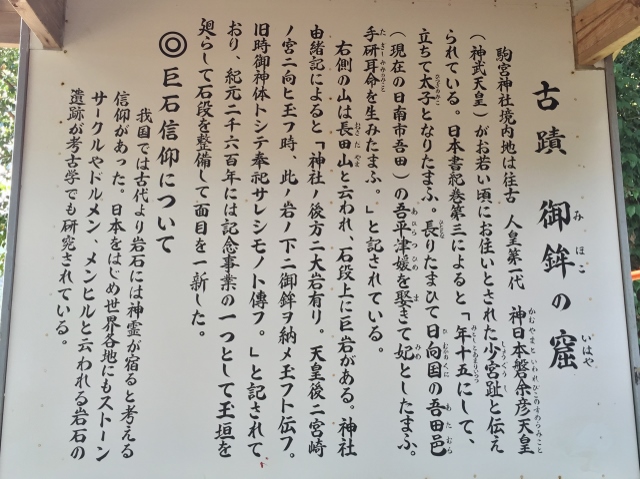 古蹟　御鉾の窟
みほこ　いはや
駒宮神社境内地は往古　人皇第一代　神日本磐余彦天皇
（神武天皇）がお若い頃にお住いとされた少宮趾と伝え
られている。日本書紀巻第三によると「年十五にして、
立ちて太子となりたまふ。長りたまひて日向国の吾田邑
（現在の日南市吾田）の吾平津媛を娶きて妃としたまふ。
手研耳命を生みたまふ。」と記されている。
右側の山は長田山と云われ、石段上に巨岩がある。神社
由緒記によると「神社ノ後方ニ大岩有り。天皇後ニ宮崎
ノ宮ニ向ヒ玉フ時、此ノ岩ノ下ニ御鉾ヲ納メ玉フト伝フ。
旧時御神体トシテ奉祀サレシモノト傳フ。」と記されて
おり、紀元二千六百年には記念事業の一つとして玉垣を
廻らして石段を整備して面目を一新した。
◎巨石信仰について
我国では古代より岩石には神霊が宿ると考える
信仰があった。日本をはじめ世界各地にもストーン
サークルやドルメン、メンヒルと云われる岩石の
遺跡が考古学でも研究されている。